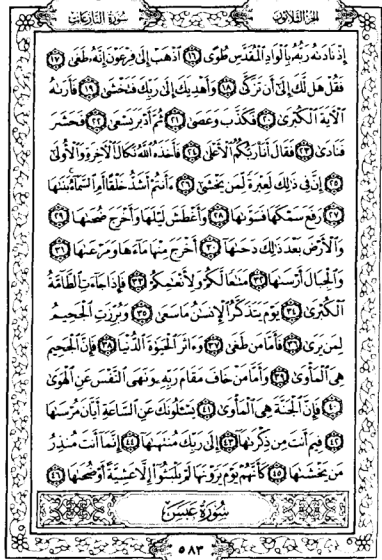 الجزء الثلاثون
سورة النازعات
إِذْ نَادَىٰهُ رَبُّهُۥ بِٱلْوَادِ ٱلْمُقَدَّسِ طُوًى ١٦ ٱذْهَبْ إِلَىٰ فِرْعَوْنَ إِنَّهُۥ طَغَىٰ ١٧
فَقُلْ هَل لَّكَ إِلَىٰٓ أَن تَزَكَّىٰ ١٨ وَأَهْدِيَكَ إِلَىٰ رَبِّكَ فَتَخْشَىٰ ١٩ فَأَرَىٰهُ
ٱلْءَايَةَ ٱلْكُبْرَىٰ ٢٠ فَكَذَّبَ وَعَصَىٰ ٢١ ثُمَّ أَدْبَرَ يَسْعَىٰ ٢٢ فَحَشَرَ
فَنَادَىٰ ٢٣ فَقَالَ أَنَا۠ رَبُّكُمُ ٱلْأَعْلَىٰ ٢٤ فَأَخَذَهُ ٱللَّهُ نَكَالَ ٱلْءَاخِرَةِ وَٱلْأُولَىٰٓ
٢٥ إِنَّ فِى ذَٰلِكَ لَعِبْرَةً لِّمَن يَخْشَىٰٓ ٢٦ ءَأَنتُمْ أَشَدُّ خَلْقًا أَمِ ٱلسَّمَآءُ ۚ بَنَىٰهَا
٢٧ رَفَعَ سَمْكَهَا فَسَوَّىٰهَا ٢٨ وَأَغْطَشَ لَيْلَهَا وَأَخْرَجَ ضُحَىٰهَا ٢٩
وَٱلْأَرْضَ بَعْدَ ذَٰلِكَ دَحَىٰهَآ ٣٠ أَخْرَجَ مِنْهَا مَآءَهَا وَمَرْعَىٰهَا ٣١
وَٱلْجِبَالَ أَرْسَىٰهَا ٣٢ مَتَٰعًا لَّكُمْ وَلِأَنْعَٰمِكُمْ ٣٣ فَإِذَا جَآءَتِ ٱلطَّآمَّةُ
ٱلْكُبْرَىٰ ٣٤ يَوْمَ يَتَذَكَّرُ ٱلْإِنسَٰنُ مَا سَعَىٰ ٣٥ وَبُرِّزَتِ ٱلْجَحِيمُ
لِمَن يَرَىٰ ٣٦ فَأَمَّا مَن طَغَىٰ ٣٧ وَءَاثَرَ ٱلْحَيَوٰةَ ٱلدُّنْيَا ٣٨ فَإِنَّ ٱلْجَحِيمَ
هِىَ ٱلْمَأْوَىٰ ٣٩ وَأَمَّا مَنْ خَافَ مَقَامَ رَبِّهِۦ وَنَهَى ٱلنَّفْسَ عَنِ ٱلْهَوَىٰ
٤٠ فَإِنَّ ٱلْجَنَّةَ هِىَ ٱلْمَأْوَىٰ ٤١ يَسْـَٔلُونَكَ عَنِ ٱلسَّاعَةِ أَيَّانَ مُرْسَىٰهَا
٤٢ فِيمَ أَنتَ مِن ذِكْرَىٰهَآ ٤٣ إِلَىٰ رَبِّكَ مُنتَهَىٰهَآ ٤٤ إِنَّمَآ أَنتَ مُنذِرُ
مَن يَخْشَىٰهَا ٤٥ كَأَنَّهُمْ يَوْمَ يَرَوْنَهَا لَمْ يَلْبَثُوٓا۟ إِلَّا عَشِيَّةً أَوْ ضُحَىٰهَا ٤٦
سورة عبس
٥٨٣